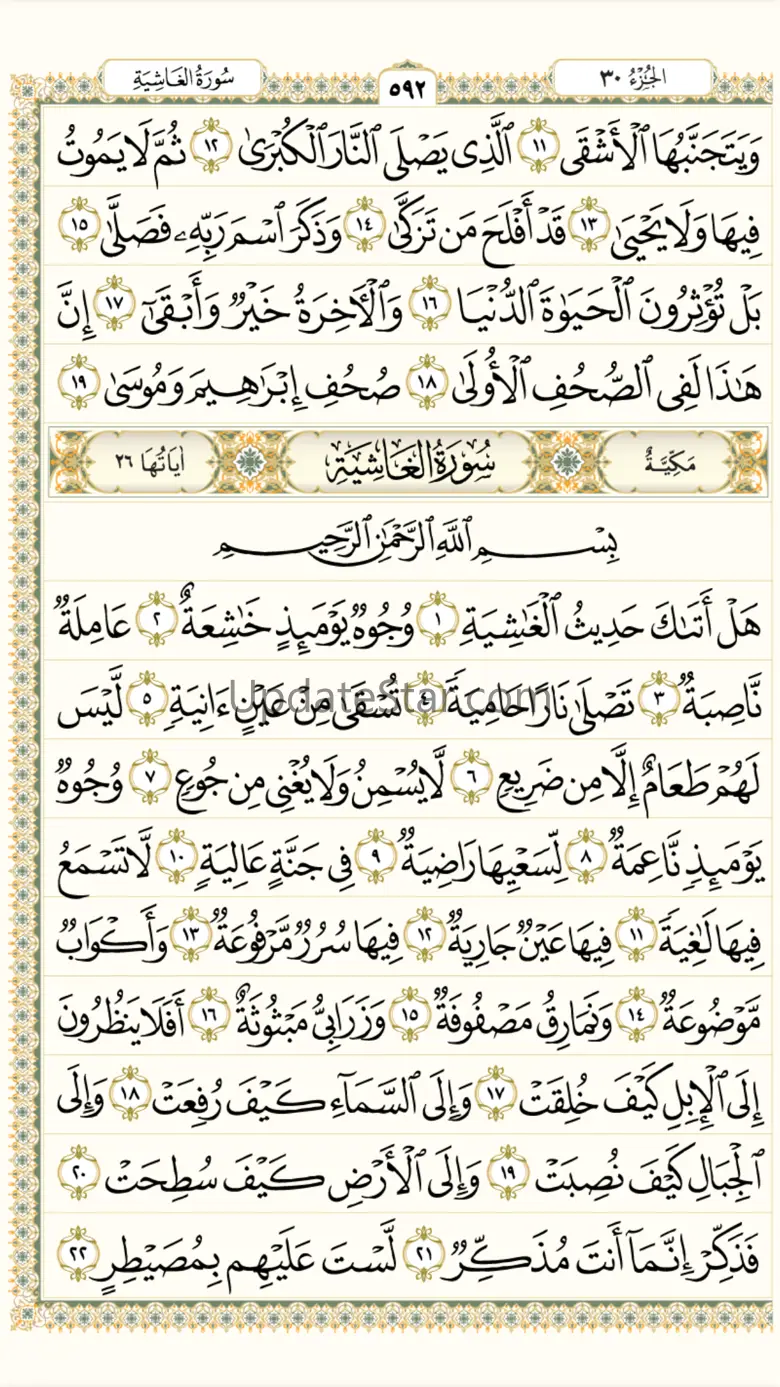 الجُزْءُ ٣٠
٥٩٢
سُورَةُ الغَاشِيَةِ
وَيَتَجَنَّبُهَا ٱلۡأَشۡقَى ١١ ٱلَّذِي يَصۡلَى ٱلنَّارَ ٱلۡكُبۡرَىٰ ١٢ ثُمَّ لَا يَمُوتُ
فِيهَا وَلَا يَحۡيَىٰ ١٣ قَدۡ أَفۡلَحَ مَن تَزَكَّىٰ ١٤ وَذَكَرَ ٱسۡمَ رَبِّهِۦ فَصَلَّىٰ ١٥
بَلۡ تُؤۡثِرُونَ ٱلۡحَيَوٰةَ ٱلدُّنۡيَا ١٦ وَٱلۡأٓخِرَةُ خَيۡرٞ وَأَبۡقَىٰٓ ١٧ إِنَّ
هَٰذَا لَفِي ٱلصُّحُفِ ٱلۡأُولَىٰ ١٨ صُحُفِ إِبۡرَٰهِيمَ وَمُوسَىٰ ١٩
مَكِّيَّةٌ سُورَةُ الغَاشِيَةِ اٰيَاتُهَا ٢٦
بِسۡمِ ٱللَّهِ ٱلرَّحۡمَٰنِ ٱلرَّحِيمِ
هَلۡ أَتَىٰكَ حَدِيثُ ٱلۡغَٰشِيَةِ ١ وُجُوهٞ يَوۡمَئِذٍ خَٰشِعَةٌ ٢ عَامِلَةٞ
نَّاصِبَةٞ ٣ تَصۡلَىٰ نَارًا حَامِيَةٗ ٤ تُسۡقَىٰ مِنۡ عَيۡنٍ ءَانِيَةٖ ٥ لَّيۡسَ
UpdateStar.com
لَهُمۡ طَعَامٌ إِلَّا مِن ضَرِيعٖ ٦ لَّا يُسۡمِنُ وَلَا يُغۡنِي مِن جُوعٖ ٧ وُجُوهٞ
يَوۡمَئِذٖ نَّاعِمَةٞ ٨ لِّسَعۡيِهَا رَاضِيَةٞ ٩ فِي جَنَّةٍ عَالِيَةٖ ١٠ لَّا تَسۡمَعُ
فِيهَا لَٰغِيَةٗ ١١ فِيهَا عَيۡنٞ جَارِيَةٞ ١٢ فِيهَا سُرُرٞ مَّرۡفُوعَةٞ ١٣ وَأَكۡوَابٞ
مَّوۡضُوعَةٞ ١٤ وَنَمَارِقُ مَصۡفُوفَةٞ ١٥ وَزَرَابِيُّ مَبۡثُوثَةٌ ١٦ أَفَلَا يَنظُرُونَ
إِلَى ٱلۡإِبِلِ كَيۡفَ خُلِقَتۡ ١٧ وَإِلَى ٱلسَّمَآءِ كَيۡفَ رُفِعَتۡ ١٨ وَإِلَى
ٱلۡجِبَالِ كَيۡفَ نُصِبَتۡ ١٩ وَإِلَى ٱلۡأَرۡضِ كَيۡفَ سُطِحَتۡ ٢٠
فَذَكِّرۡ إِنَّمَآ أَنتَ مُذَكِّرٞ ٢١ لَّسۡتَ عَلَيۡهِم بِمُصَيۡطِرٍ ٢٢